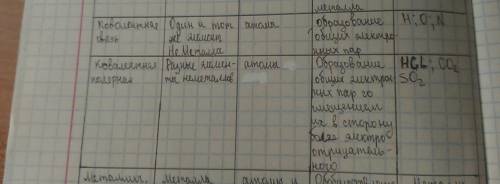 металла
Ковалентная
связь
Один и тот
же элемент
Неметалла
атомы
Образование
общих электро
нных пар
H; O; N
Ковалентная
полярная
Разные элемен-
ты неметаллов
атомы
Образование
общих электрон
ных пар со
смещением
их в сторону
более электро
отрицатель-
ного
HCL; CO2
SO2
Металлич.
Металла
атомы и